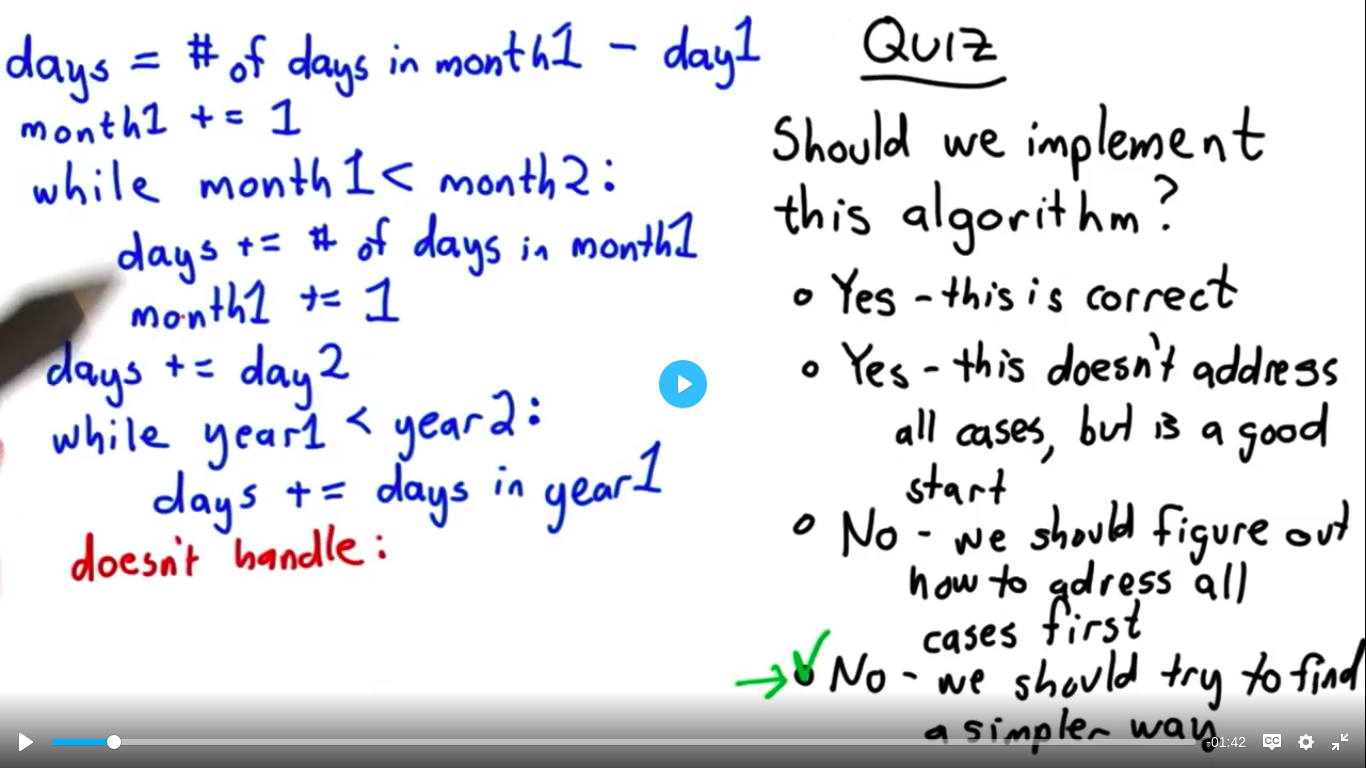 days = # of days in month1 - day1
month1 += 1
while month1 < month2:
days += # of days in month1
month1 += 1
days += day2
while year1 < year2:
days += days in year1
doesn't handle:
QUIZ
Should we implement
this algorithm?
Yes - this is correct
Yes - this doesn't address
all cases, but is a good
start
No - we should figure out
how to adress all
cases first
No - we should try to find
a simpler way
-01:42
CC